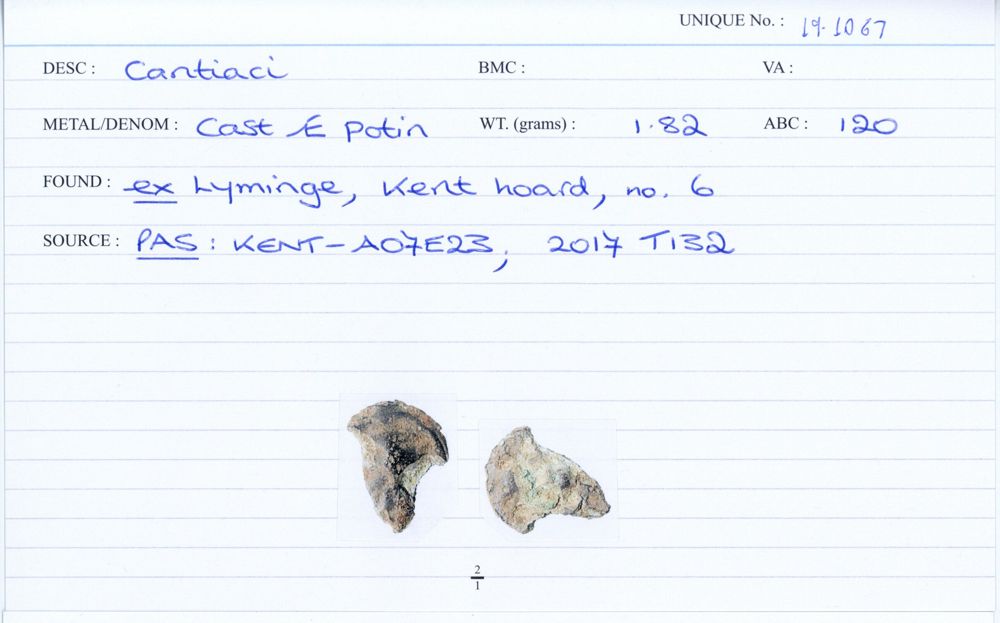 UNIQUE No. : 19.1067
DESC : Cantiaci BMC : VA :
METAL/DENOM : Cast Æ potin WT. (grams) : 1.82 ABC : 120
FOUND : ex Lyminge, Kent hoard, no. 6
SOURCE : PAS : KENT-A07E23; 2017 T132
2
1